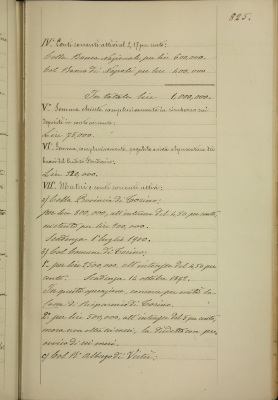 825.
IV.° Conti correnti attivi al 2,17 per cento:
Colla Banca Nazionale per lire 600,000.
Col Banco di Napoli per lire 400,000.
In totale lire 1,000,000.
V.° Somma chiesta complessivamente in rimborso sui
depositi in conto corrente:
Lire 75,000.
VI.° Somma, complessivamente,
Lire 120,000.
VII.° Mutui e conti correnti attivi:
a) Colla Provincia di Torino,
per lire 800,000, all'interesse del 4,50 per cento,
per lire 900,000.
Scadenza 1° luglio 1900.
b) Col Comune di Torino,
1.° per lire 2500,000, all'interesse del 4,50 per
cento. Scadenza 14 ottobre 1898.
In questa operazione, concorre per metà la
Cassa di Risparmio di Torino.
2.° per lire 500,000, all'interesse del 5 per cento,
mora non oltre sei mesi, la disdetta con pre-
avviso di sei mesi.
c) Col R.° Albergo di Virtù;